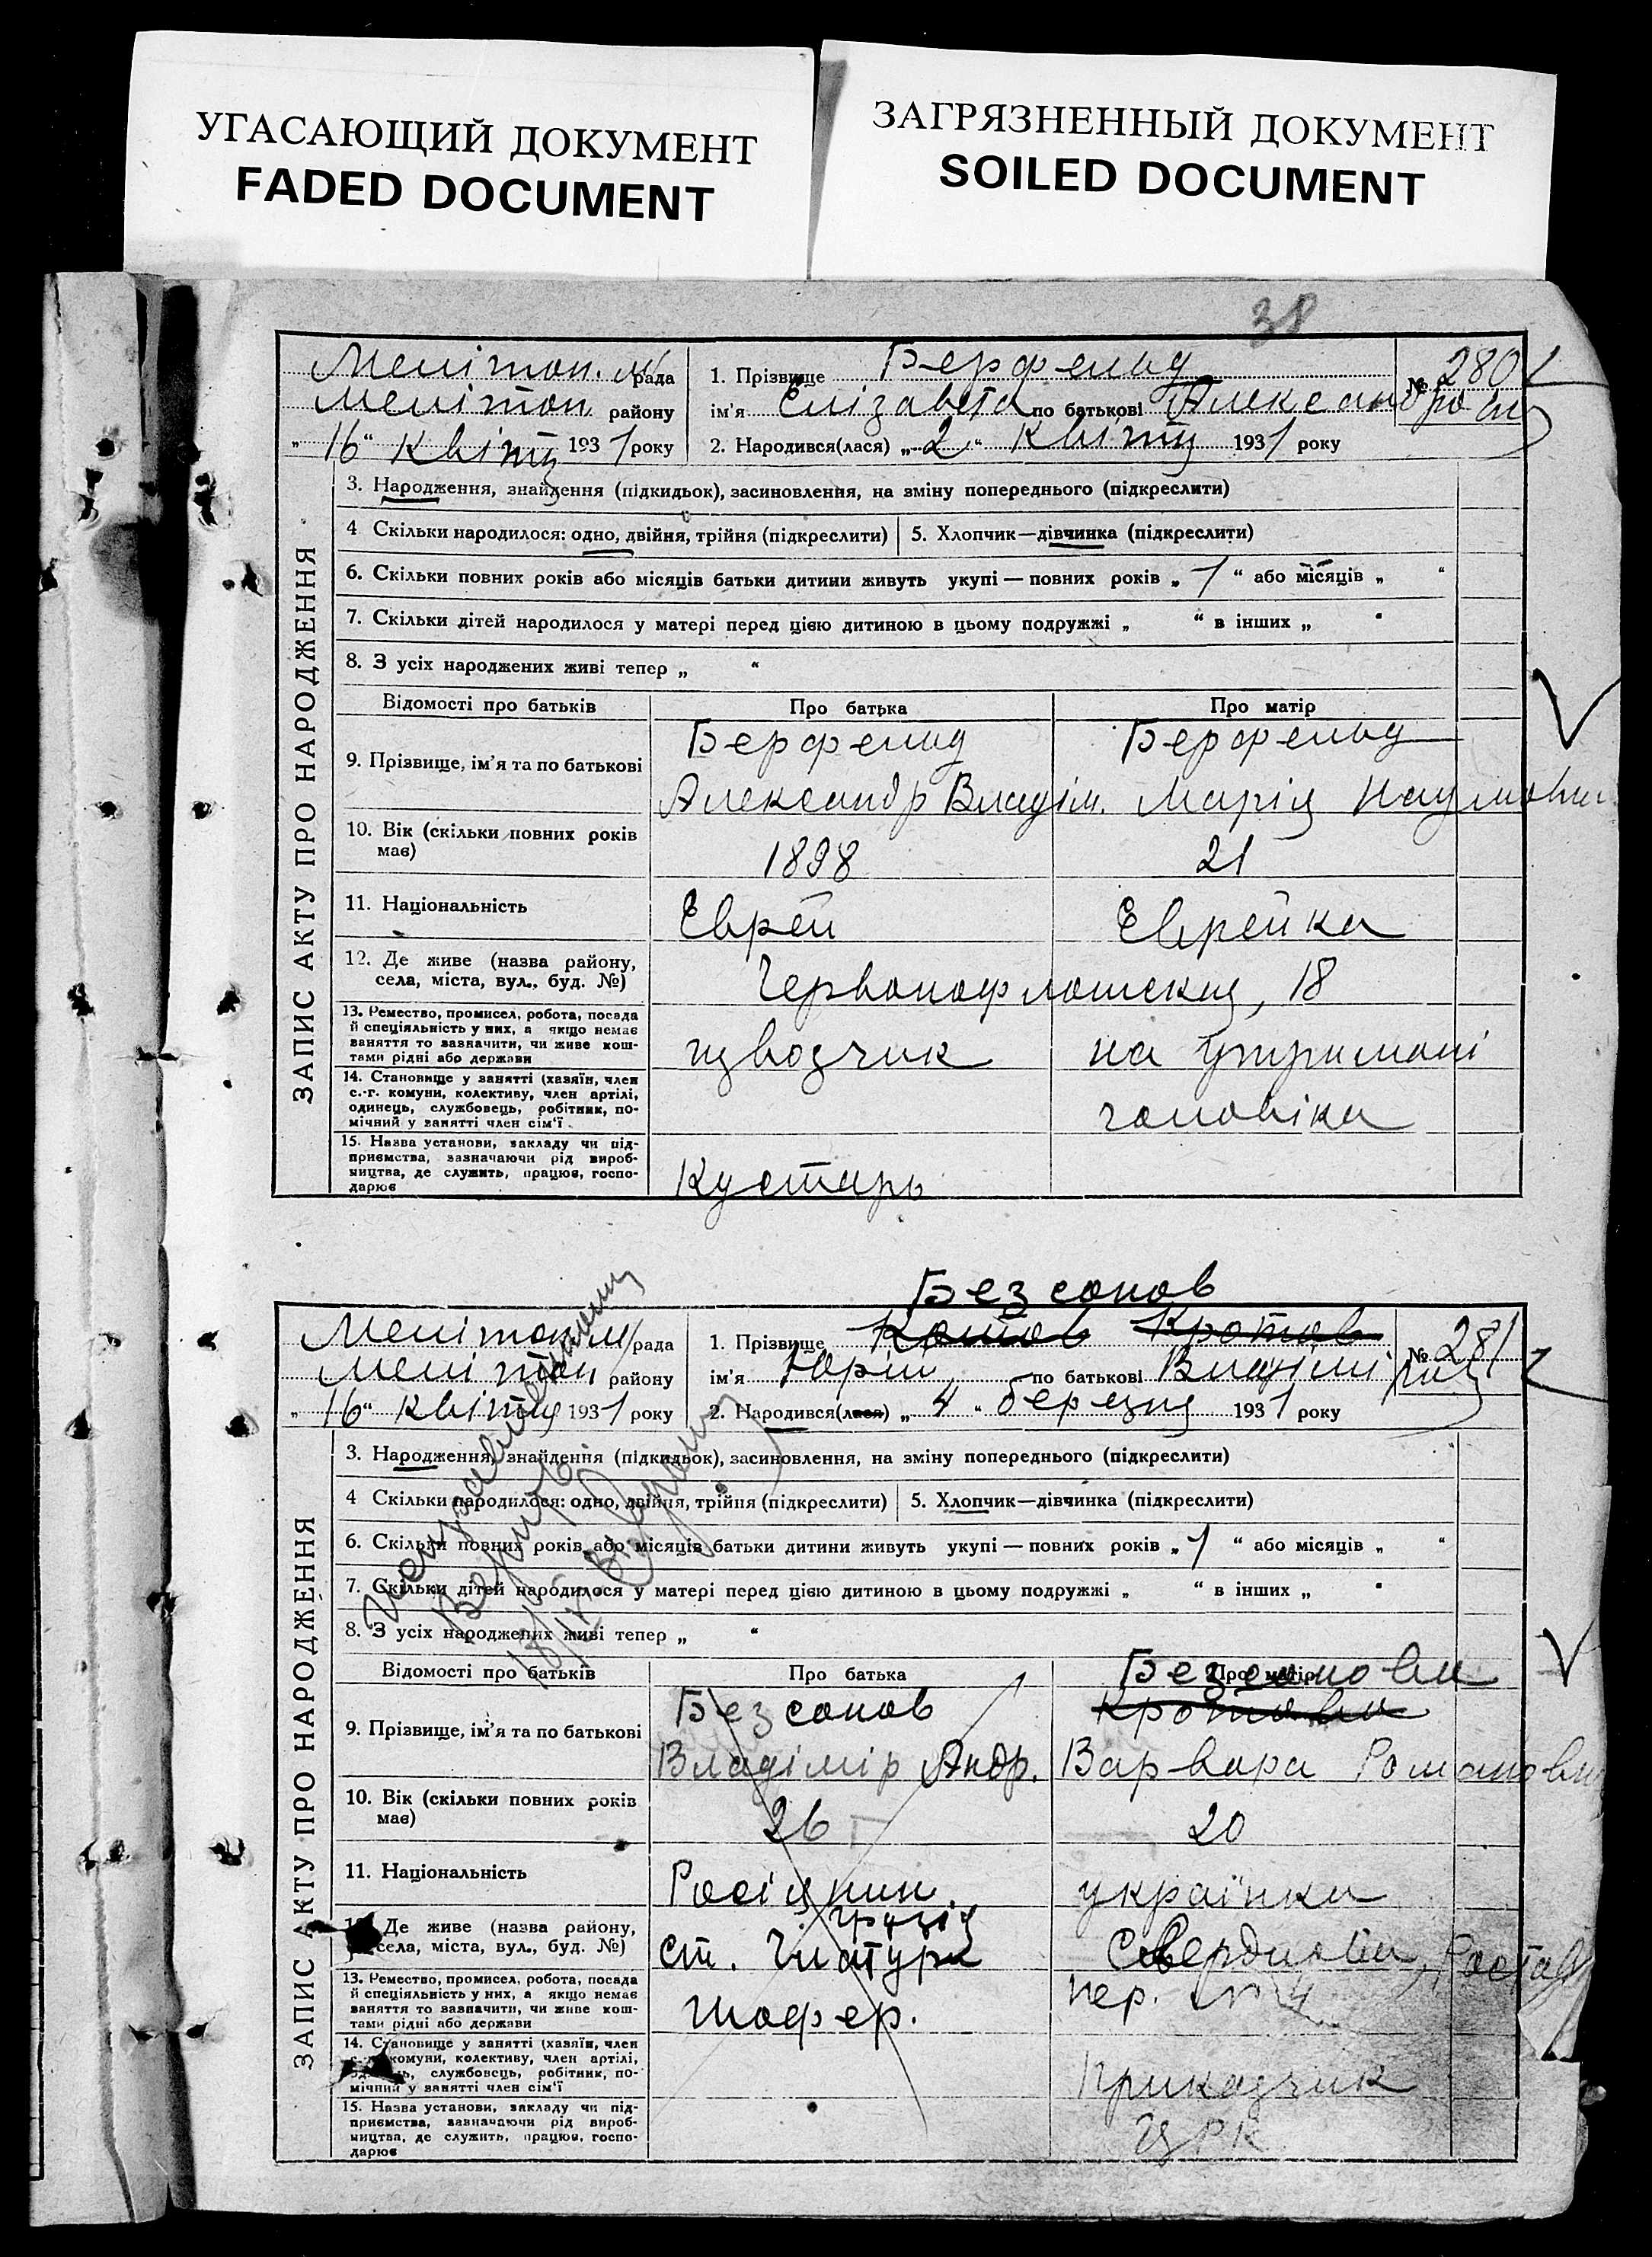 УГАСАЮЩИЙ ДОКУМЕНТ
FADED DOCUMENT
ЗАГРЯЗНЕННЫЙ ДОКУМЕНТ
SOILED DOCUMENT
38
ЗАПИС АКТУ ПРО НАРОДЖЕННЯ
Мелітоп. м/рада
Мелітоп. району
„16“ квітня 1931 року
1. Прізвище Берфельд
№ 280
ім'я Елізавета по батькові Александровна
2. Народився(лася) „2“ квітня 1931 року
3. Народження, знайдення (підкидьок), засиновлення, на зміну попереднього (підкреслити)
4 Скільки народилося: одно, двійня, трійня (підкреслити)
5. Хлопчик—дівчинка (підкреслити)
6. Скільки повних років або місяців батьки дитини живуть укупі — повних років „1“ або місяців „ “
7. Скільки дітей народилося у матері перед цією дитиною в цьому подружжі „ “ в інших „ “
8. З усіх народжених живі тепер „ “
Відомості про батьків Про батька Про матір
9. Прізвище, ім'я та по батькові
Берфельд Берфельд
Александр Владім. Марія Наумовна
10. Вік (скільки повних років має)
1898 21
11. Національність
Еврей Еврейка
12. Де живе (назва району, села, міста, вул., буд. №)
Червонофлотська, 18
13. Ремество, промисел, робота, посада й спеціяльність у них, а якщо немає заняття то зазначити, чи живе коштами рідні або держави
извозчик на утримані
14. Становище у занятті (хазяїн, член с.-г. комуни, колективу, член артілі, одинець, службовець, робітник, помічний у занятті член сім'ї
чоловіка
15. Назва установи, закладу чи підприємства, зазначаючи рід виробництва, де служить, працює, господарює
Кустарь
ЗАПИС АКТУ ПРО НАРОДЖЕННЯ
Безсонов
Мелітоп м/рада
Мелітоп. району
„16“ квітня 1931 року
1. Прізвище Котов Кротов
№ 281
ім'я Юрій по батькові Владімірович
2. Народився(лася) „4“ березня 1931 року
3. Народження, знайдення (підкидьок), засиновлення, на зміну попереднього (підкреслити)
4 Скільки народилося: одно, двійня, трійня (підкреслити)
5. Хлопчик—дівчинка (підкреслити)
6. Скільки повних років або місяців батьки дитини живуть укупі — повних років „1“ або місяців „ “
7. Скільки дітей народилося у матері перед цією дитиною в цьому подружжі „ “ в інших „ “
8. З усіх народжених живі тепер „ “
Відомості про батьків Про батька Про матір
Безсонова
9. Прізвище, ім'я та по батькові
Безсонов Кротова
Владімір Андр. Варвара Романовна
10. Вік (скільки повних років має)
26 20
11. Національність
Росіянин. українка
12. Де живе (назва району, села, міста, вул., буд. №)
Грузія
ст. Чиатура Свердлова,
пер. № 4
13. Ремество, промисел, робота, посада й спеціяльність у них, а якщо немає заняття то зазначити, чи живе коштами рідні або держави
шофер.
14. Становище у занятті (хазяїн, член с.-г. комуни, колективу, член артілі, одинець, службовець, робітник, помічний у занятті член сім'ї
Приказчик
15. Назва установи, закладу чи підприємства, зазначаючи рід виробництва, де служить, працює, господарює
ЦРК